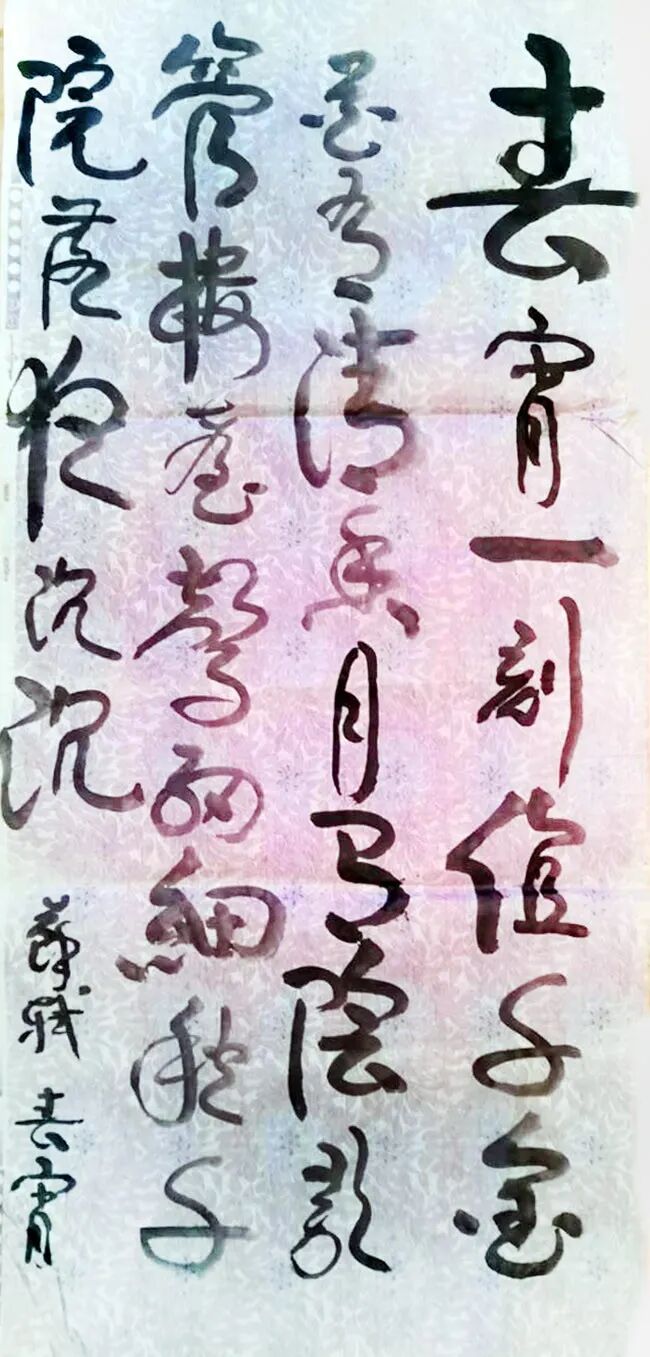 春宵一刻值千金
花有清香月有陰歌
管樓臺聲細細秋千
院落夜沉沉
蘇軾 春宵